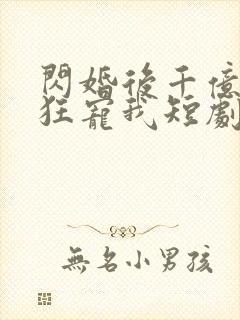 閃婚後千億
狂寵我短劇
無名小男孩